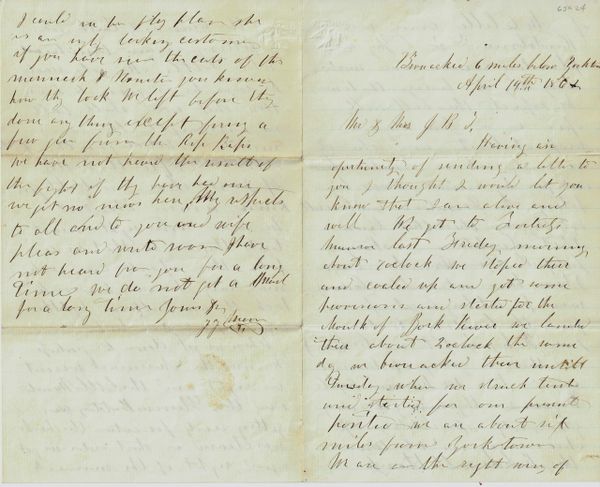 Bivouacked 6 miles below Yorktown
April 19th 1862
Mr & Mrs J. B. T.
Having an
oportunity of sending a letter to
you I thought I would let you
know that I am alive and
well We got to Fortress
Monroe last Friday morning
about o'clock we stoped there
and coaled up and got some
provisions and started for the
Mouth of York River we landed
there about 2 oclock the same
day we bivouacked there untill
Tuesday when we struck tents
and started for our present
position we are about six
miles from York town
We are on the right wing of
I could in be fly place she
is an ugly looking customer
if you have seen the cuts of the
merrimack & Monitor you know
how they look We left before they
done any thing except firing a
few guns from the Rip Raps
we have not heard the result of
the fight if they have had one
we get no news here, My respects
to all and to you and wife
pleas and write soon I have
not heard from you for a long
time, we do not get a Mail
for a long time Yours &c